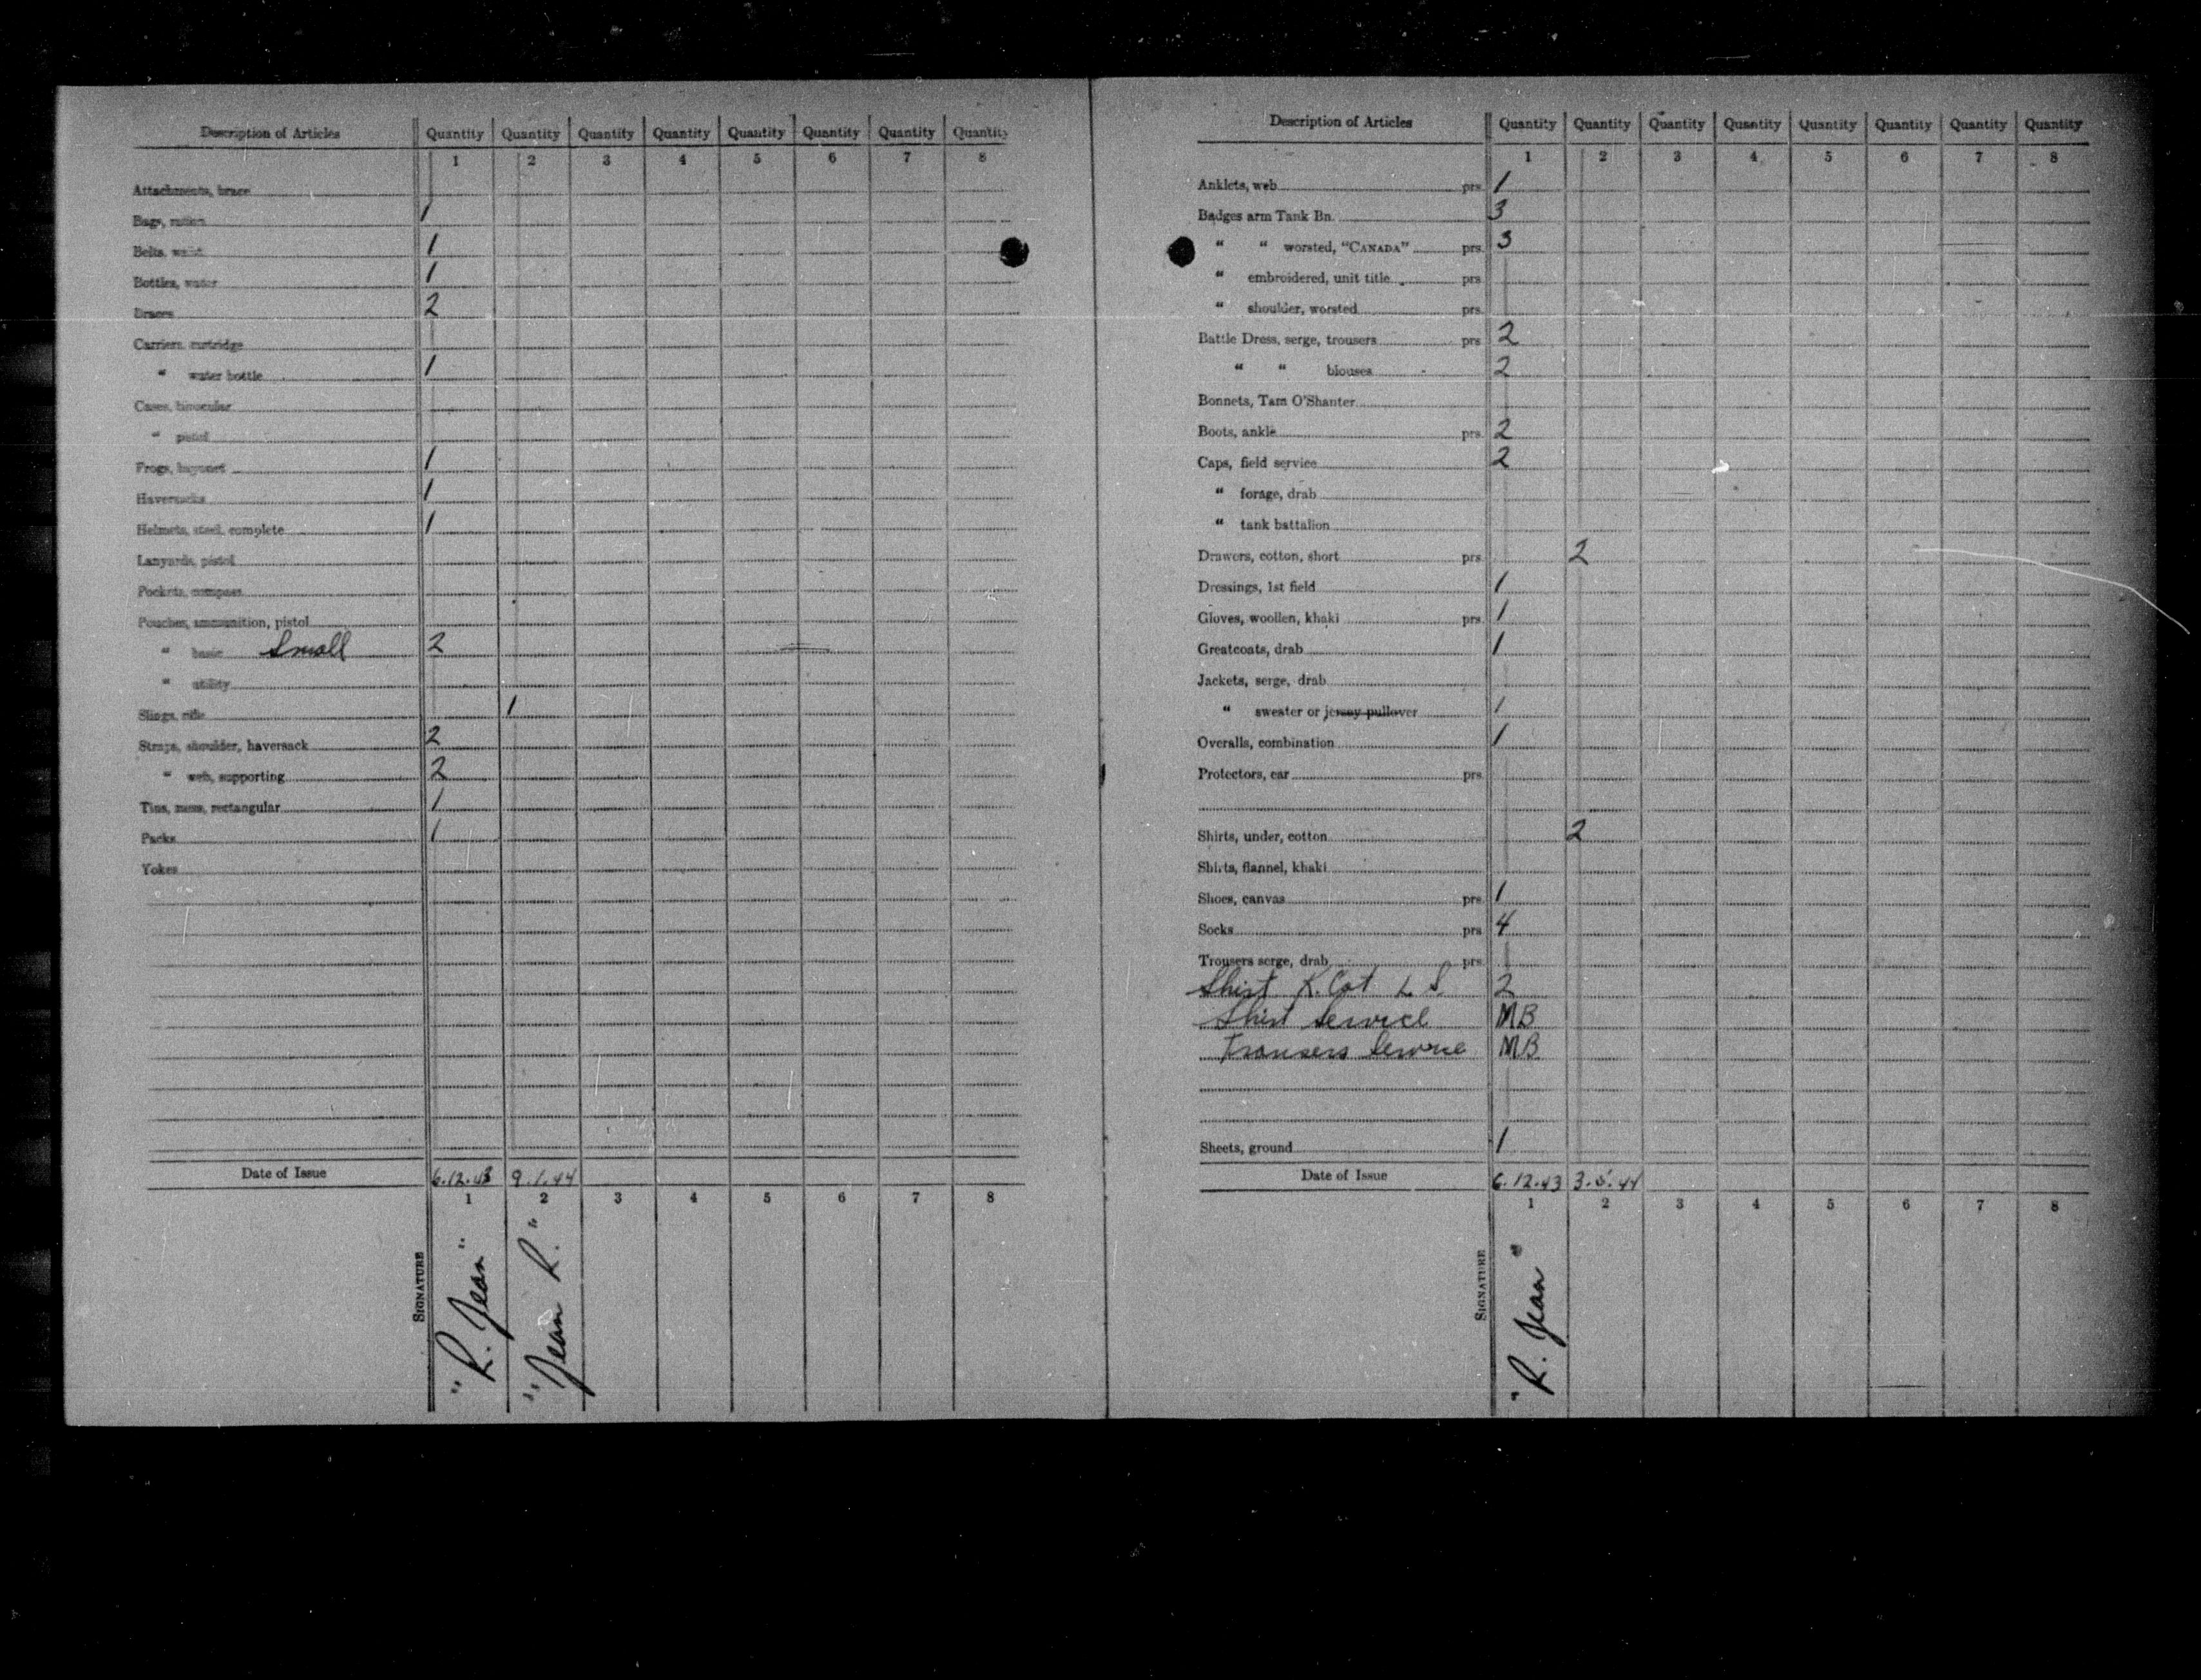 Description of Articles Quantity Quantity Quantity Quantity Quantity Quantity Quantity Quantity
1 2 3 4 5 6 7 8
Attachments, brace
Bags, ration 1
Belts, waist 1
Bottles, water 1
Braces 2
Carriers, cartridge
“ water bottle 1
Cases, binocular
“ pistol
Frogs, bayonet 1
Haversacks 1
Helmets, steel, complete 1
Lanyards, pistol
Pockets, compass
Pouches, ammunition, pistol
“ basic Small 2
“ utility
Slings, rifle 1
Straps, shoulder, haversack 2
“ web, supporting 2
Tins, mess, rectangular 1
Packs 1
Yokes
Date of Issue 6.12.43 9.1.44
1 2 3 4 5 6 7 8
SIGNATURE
"R. Jean"
"Jean R."
Description of Articles Quantity Quantity Quantity Quantity Quantity Quantity Quantity Quantity
1 2 3 4 5 6 7 8
Anklets, web prs. 1
Badges arm Tank Bn. 3
“ “ worsted, “CANADA” prs. 3
“ embroidered, unit title prs.
“ shoulder, worsted prs.
Battle Dress, serge, trousers prs. 2
“ “ blouses 2
Bonnets, Tam O'Shanter
Boots, ankle prs. 2
Caps, field service 2
“ forage, drab
“ tank battalion
Drawers, cotton, short prs. 2
Dressings, 1st field 1
Gloves, woollen, khaki prs. 1
Greatcoats, drab 1
Jackets, serge, drab
“ sweater or jersey pullover 1
Overalls, combination 1
Protectors, ear prs.
Shirts, under, cotton 2
Shirts, flannel, khaki
Shoes, canvas prs. 1
Socks prs. 4
Trousers serge, drab prs.
Shirt K. Cot L S. 2
Shirt Service MB
Trousers Service MB
Sheets, ground 1
Date of Issue 6.12.43 3.5.44
1 2 3 4 5 6 7 8
SIGNATURE
"R. Jean"